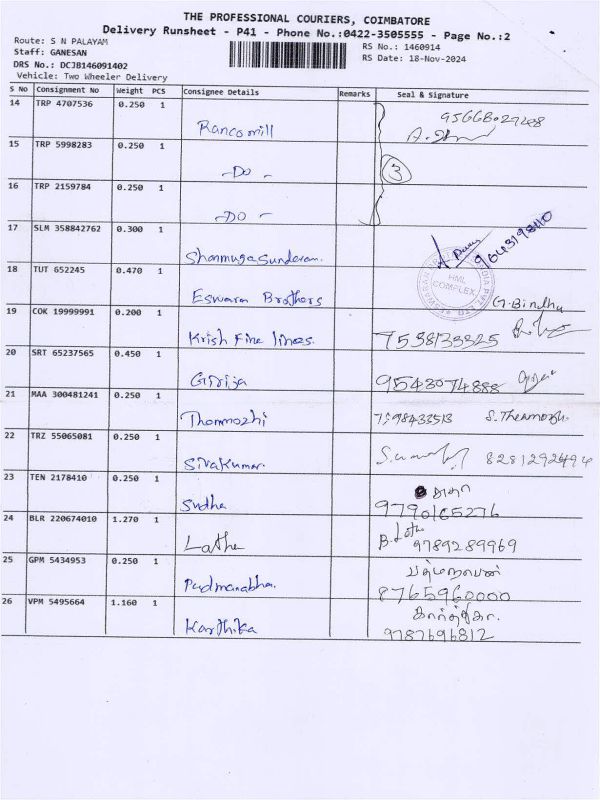 THE PROFESSIONAL COURIERS, COIMBATORE
Delivery Runsheet - P41 - Phone No.:0422-3505555 - Page No.:2
Route: S N PALAYAM
RS No.: 1460914
Staff: GANESAN
RS Date: 18-Nov-2024
DRS No.: DCJB146091402
Vehicle: Two Wheeler Delivery
S No Consignment No Weight PCS Consignee Details Remarks Seal & Signature
14 TRP 4707536 0.250 1 Rancomill
15 TRP 5998283 0.250 1 -Do- 3
16 TRP 2159784 0.250 1 -DO-
17 SLM 358842762 0.300 1 Shanmugasundaram.
18 TUT 652245 0.470 1 Eswaran Brothers HML COMPLEX G.Bindhu
19 COK 19999991 0.200 1 Krish Fine lines. 7538133325
20 SRT 65237565 0.450 1 Girija 9543074888
21 MAA 300481241 0.250 1 Thenmozhi
22 TRZ 55065081 0.250 1 Sivakumar 8281292494
23 TEN 2178410 0.250 1 Sudha சுதா 9790165276
24 BLR 220674010 1.270 1 Latha B.Latha 9789289969
25 GPM 5434953 0.250 1 Padmanabha. பத்மநாபன் 8765960000
26 VPM 5495664 1.160 1 Karthika கார்த்திகா. 9787696812